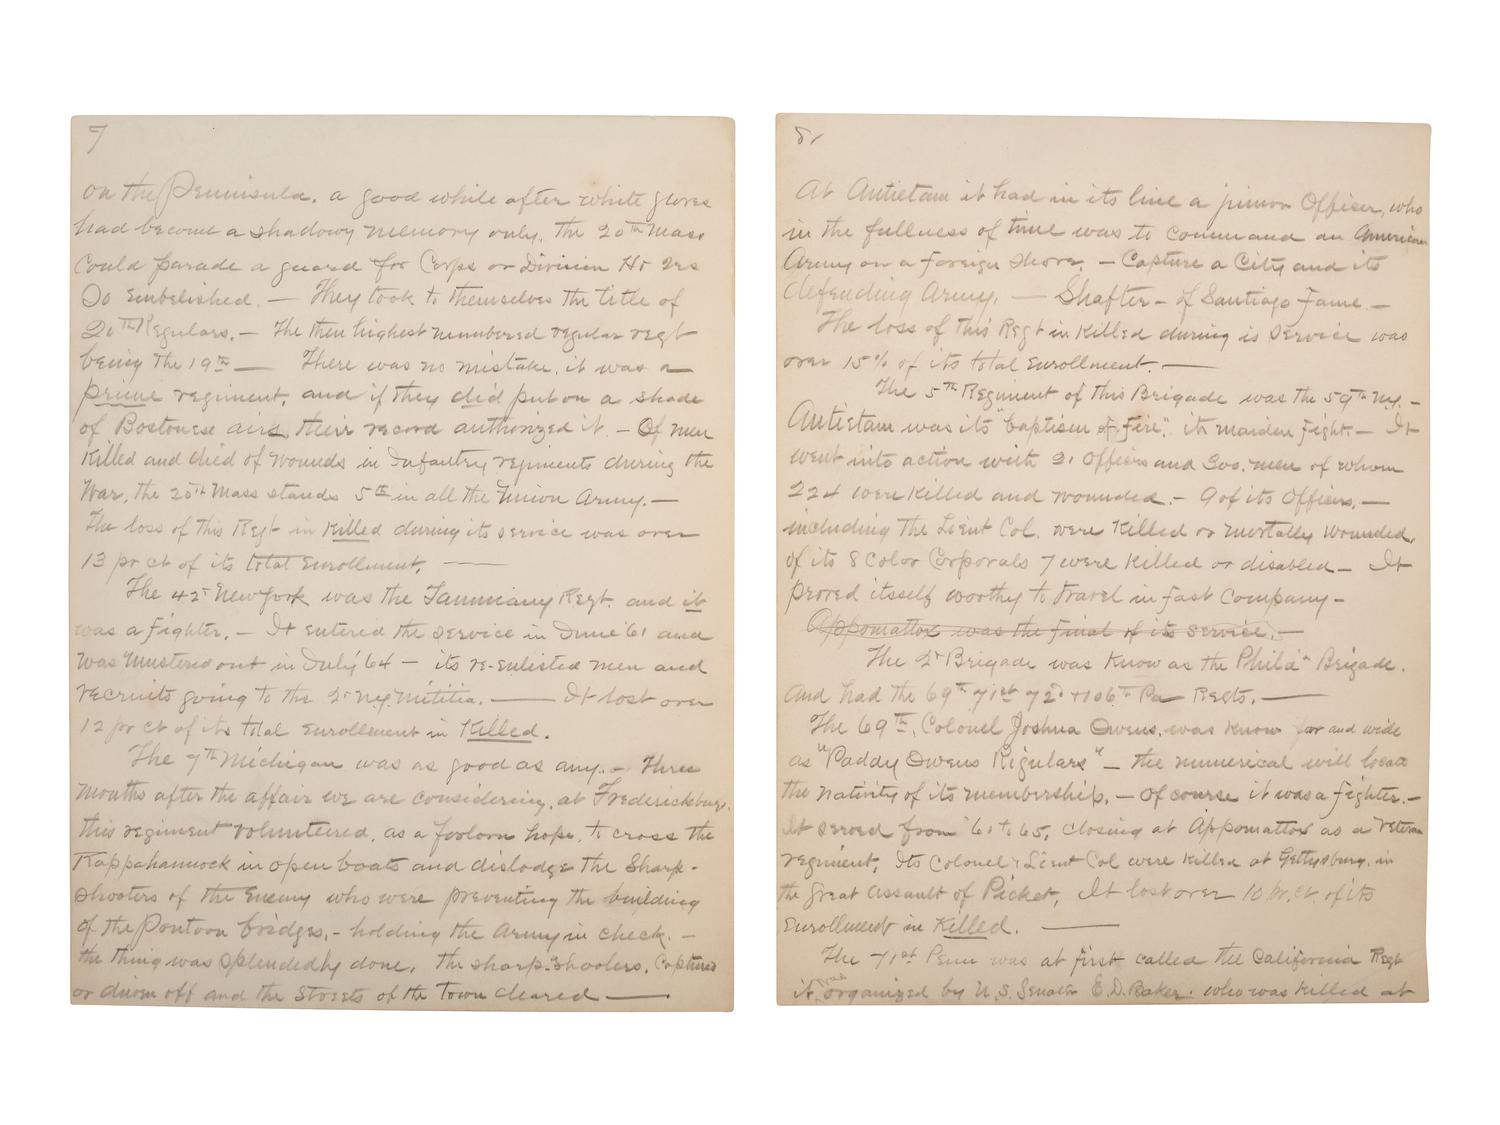 7
on the Peninsula. a good while after white gloves
had become a shadowy memory only. The 20th Mass
Could parade a guard for Corps or Division Hd Qrs
So Embelished. — They took to themselves the title of
20th Regulars. — The then highest numbered regular regt
being the 19th — There was no mistake, it was a
prime regiment, and if they did put on a shade
of Bostonese airs, their record authorized it. — Of men
Killed and died of wounds in Infantry regiments during the
War, the 20th Mass stands 5th in all the Union Army. —
The loss of this Regt in Killed during its service was over
13 pr ct of its total Enrollment. —
The 42d New York was the Tammany Regt. and it
was a fighter. — It entered the service in June '61 and
was mustered out in July '64 — its re-enlisted men and
recruits going to the 2d N.Y. Militia. — It lost over
12 pr ct of its total Enrollment in Killed.
The 7th Michigan was as good as any. — Three
months after the affair we are considering, at Fredericksburg,
this regiment volunteered, as a forlorn hope, to cross the
Rappahannock in open boats and dislodge the Sharp-
shooters of the Enemy who were preventing the building
of the Pontoon bridges, — holding the Army in check. —
the thing was splendedly done. The sharp-shooters, Captured
or driven off and the Streets of the Town cleared —
8,
At Antietam it had in its line a junior Officer, who
in the fullness of time was to command an American
Army on a foreign shore. — Capture a City and its
defending Army. — Shafter — of Santiago fame —
The loss of this Regt in Killed during is service was
over 15% of its total Enrollment. —
The 5th Regiment of this Brigade was the 59th N.Y. —
Antietam was its "baptism of fire", its maiden fight. — It
went into action with 21 Officers and 300. men of whom
224 were Killed and wounded. — 9 of its Officers, —
including the Lieut Col. were Killed or mortally wounded,
of its 8 Color Corporals 7 were Killed or disabled — It
proved itsself worthy to travel in fast company —
Appomattox was the final of its service. —
The 2d Brigade was Know as the Phild'a Brigade.
And had the 69th 71st 72d + 106th Pa Regts. —
The 69th, Colonel Joshua Owens. was Know far and wide
as "Paddy Owens Regulars" — the numerical will locate
the nativity of its membership. — Of course it was a fighter. —
It served from '61 to 65, closing at Appomattox as a Veteran
regiment, Its Colonel & Lieut Col were Killed at Gettysburg. in
the Great Assault of Picket, It lost over 10 pr. ct. of its
Enrollment in Killed. —
The 71st Penn was at first called the California Regt
it was organized by U.S. Senator E.D. Baker. who was Killed at